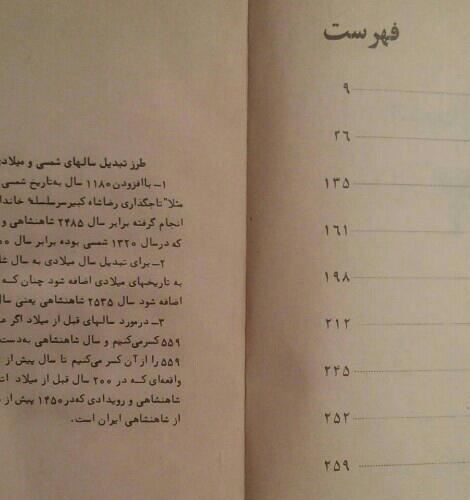 فهرست
۹
۲۶
۱۳۵
۱۶۱
۱۹۸
۲۱۲
۲۴۵
۲۵۲
۲۵۹
طرز تبدیل سالهای شمسی و میلادی
۱ـ باافزودن ۱۱۸۰ سال به‌تاریخ شمسی
مثلا" تاجگذاری رضاشاه کبیر سرسلسلهٔ خاندا
انجام گرفته برابر سال ۲۴۸۵ شاهنشاهی و
که درسال ۱۳۲۰ شمسی بوده برابر سال ۰۰
۲ـ برای تبدیل سال میلادی به سال شا
به تاریخهای میلادی اضافه شود چنان که
اضافه شود سال ۲۵۳۵ شاهنشاهی یعنی سال
۳ـ درمورد سالهای قبل از میلاد اگر
۵۵۹ کسرمی‌کنیم و سال شاهنشاهی به‌دست
۵۵۹ را از آن کسر می‌کنیم تا سال پیش از
واقعه‌ای که در ۲۰۰ سال قبل از میلاد
شاهنشاهی و رویدادی که‌در ۱۴۵۰ پیش از
از شاهنشاهی ایران است.